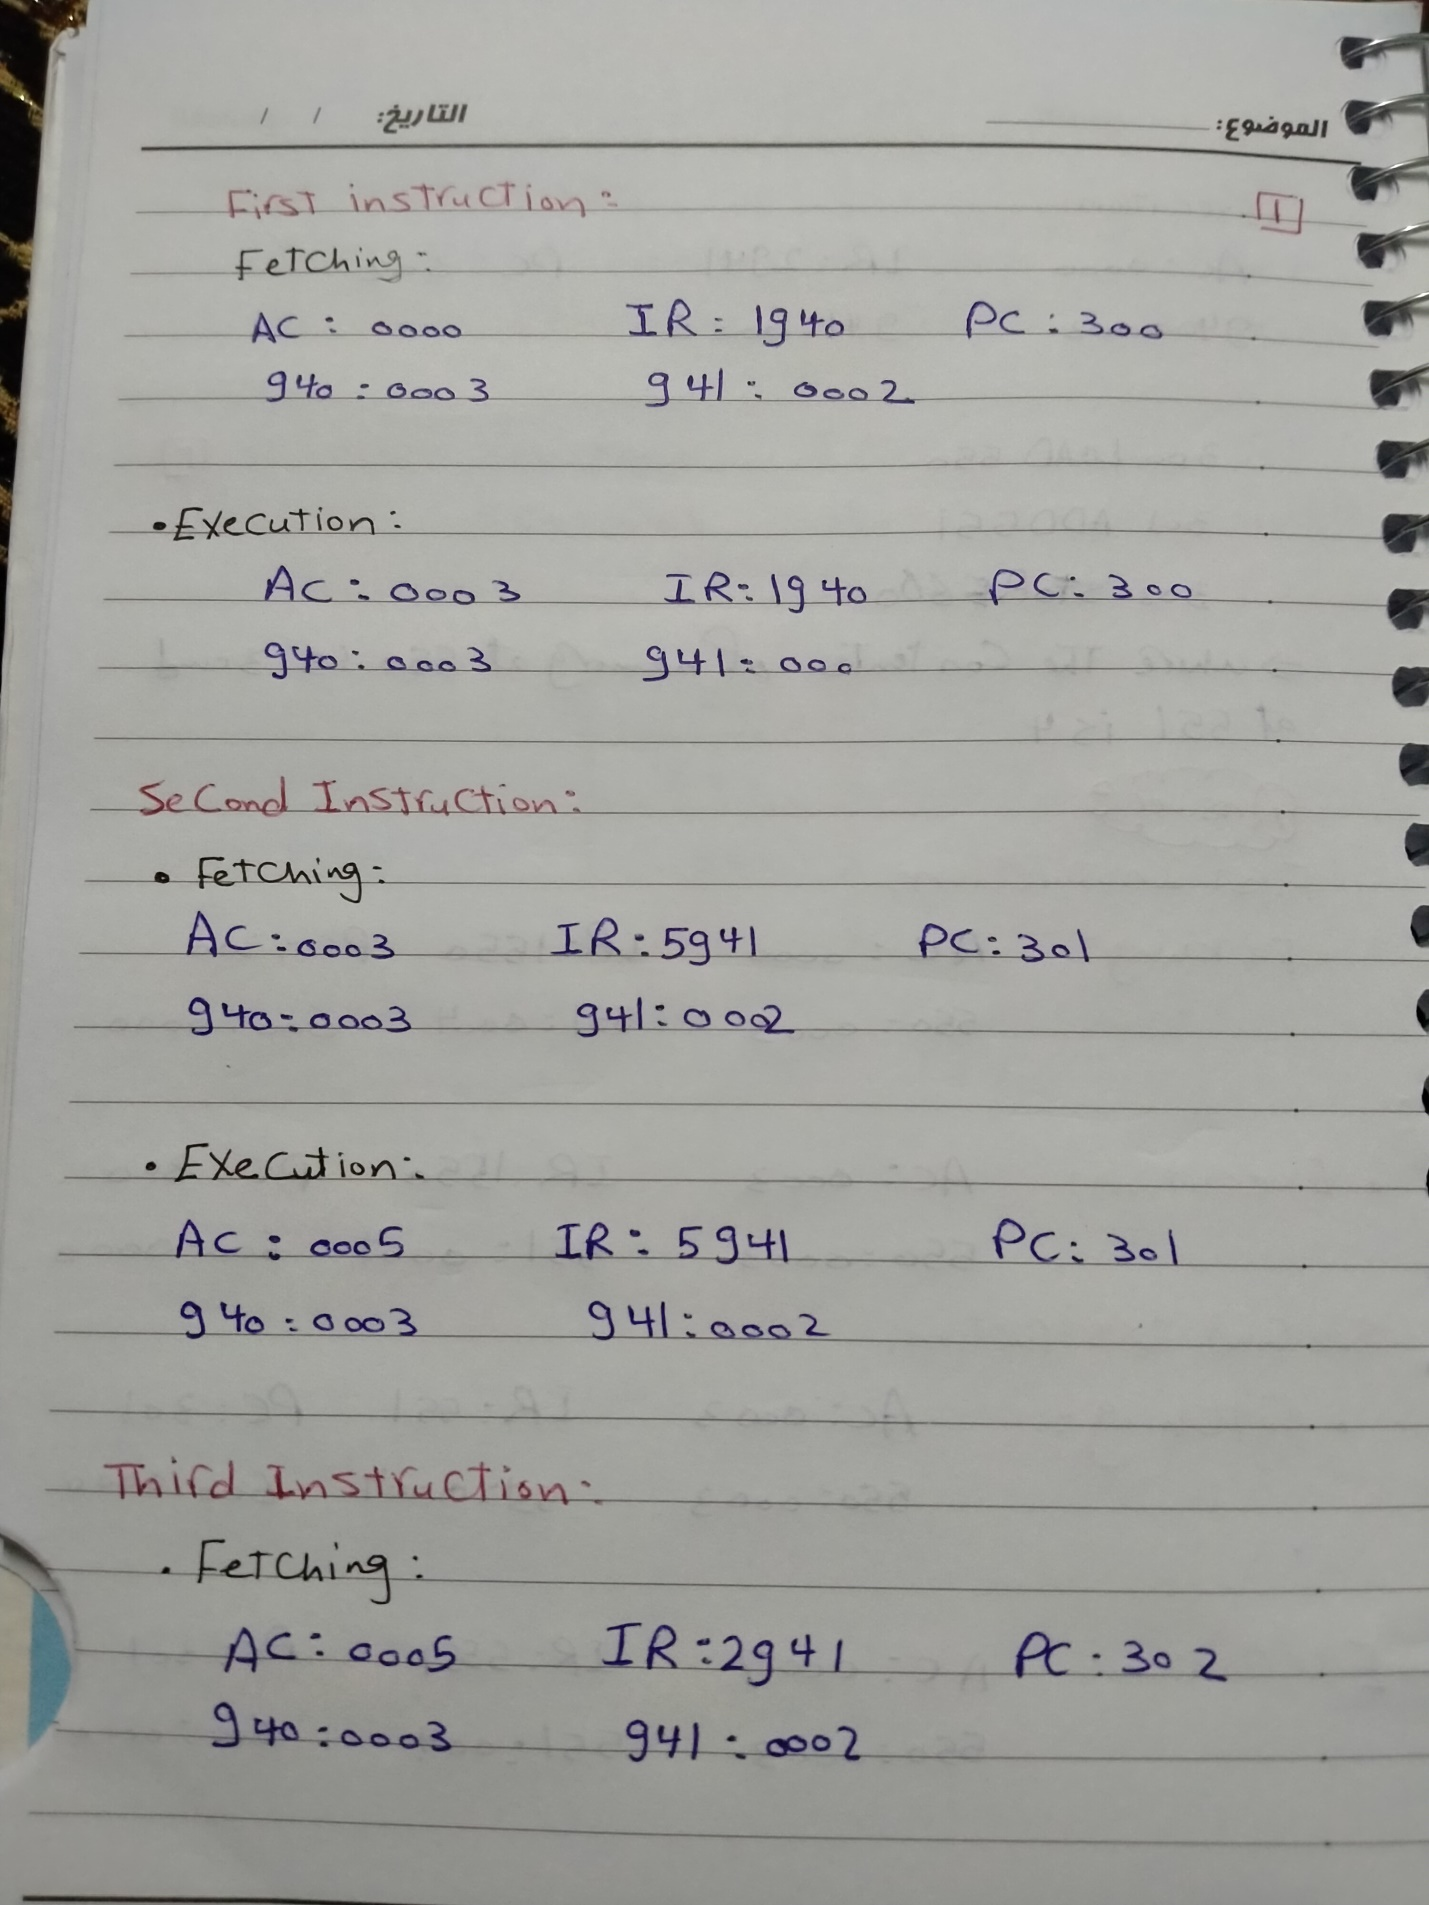 الموضوع: التاريخ: / /
1
First instruction:
Fetching:
AC: 0000 IR: 1940 PC: 300
940: 0003 941: 0002
• Execution:
AC: 0003 IR: 1940 PC: 300
940: 0003 941: 000
Second Instruction:
• Fetching:
AC: 0003 IR: 5941 PC: 301
940: 0003 941: 0002
• Execution:
AC: 0005 IR: 5941 PC: 301
940: 0003 941: 0002
Third Instruction:
• Fetching:
AC: 0005 IR: 2941 PC: 302
940: 0003 941: 0002